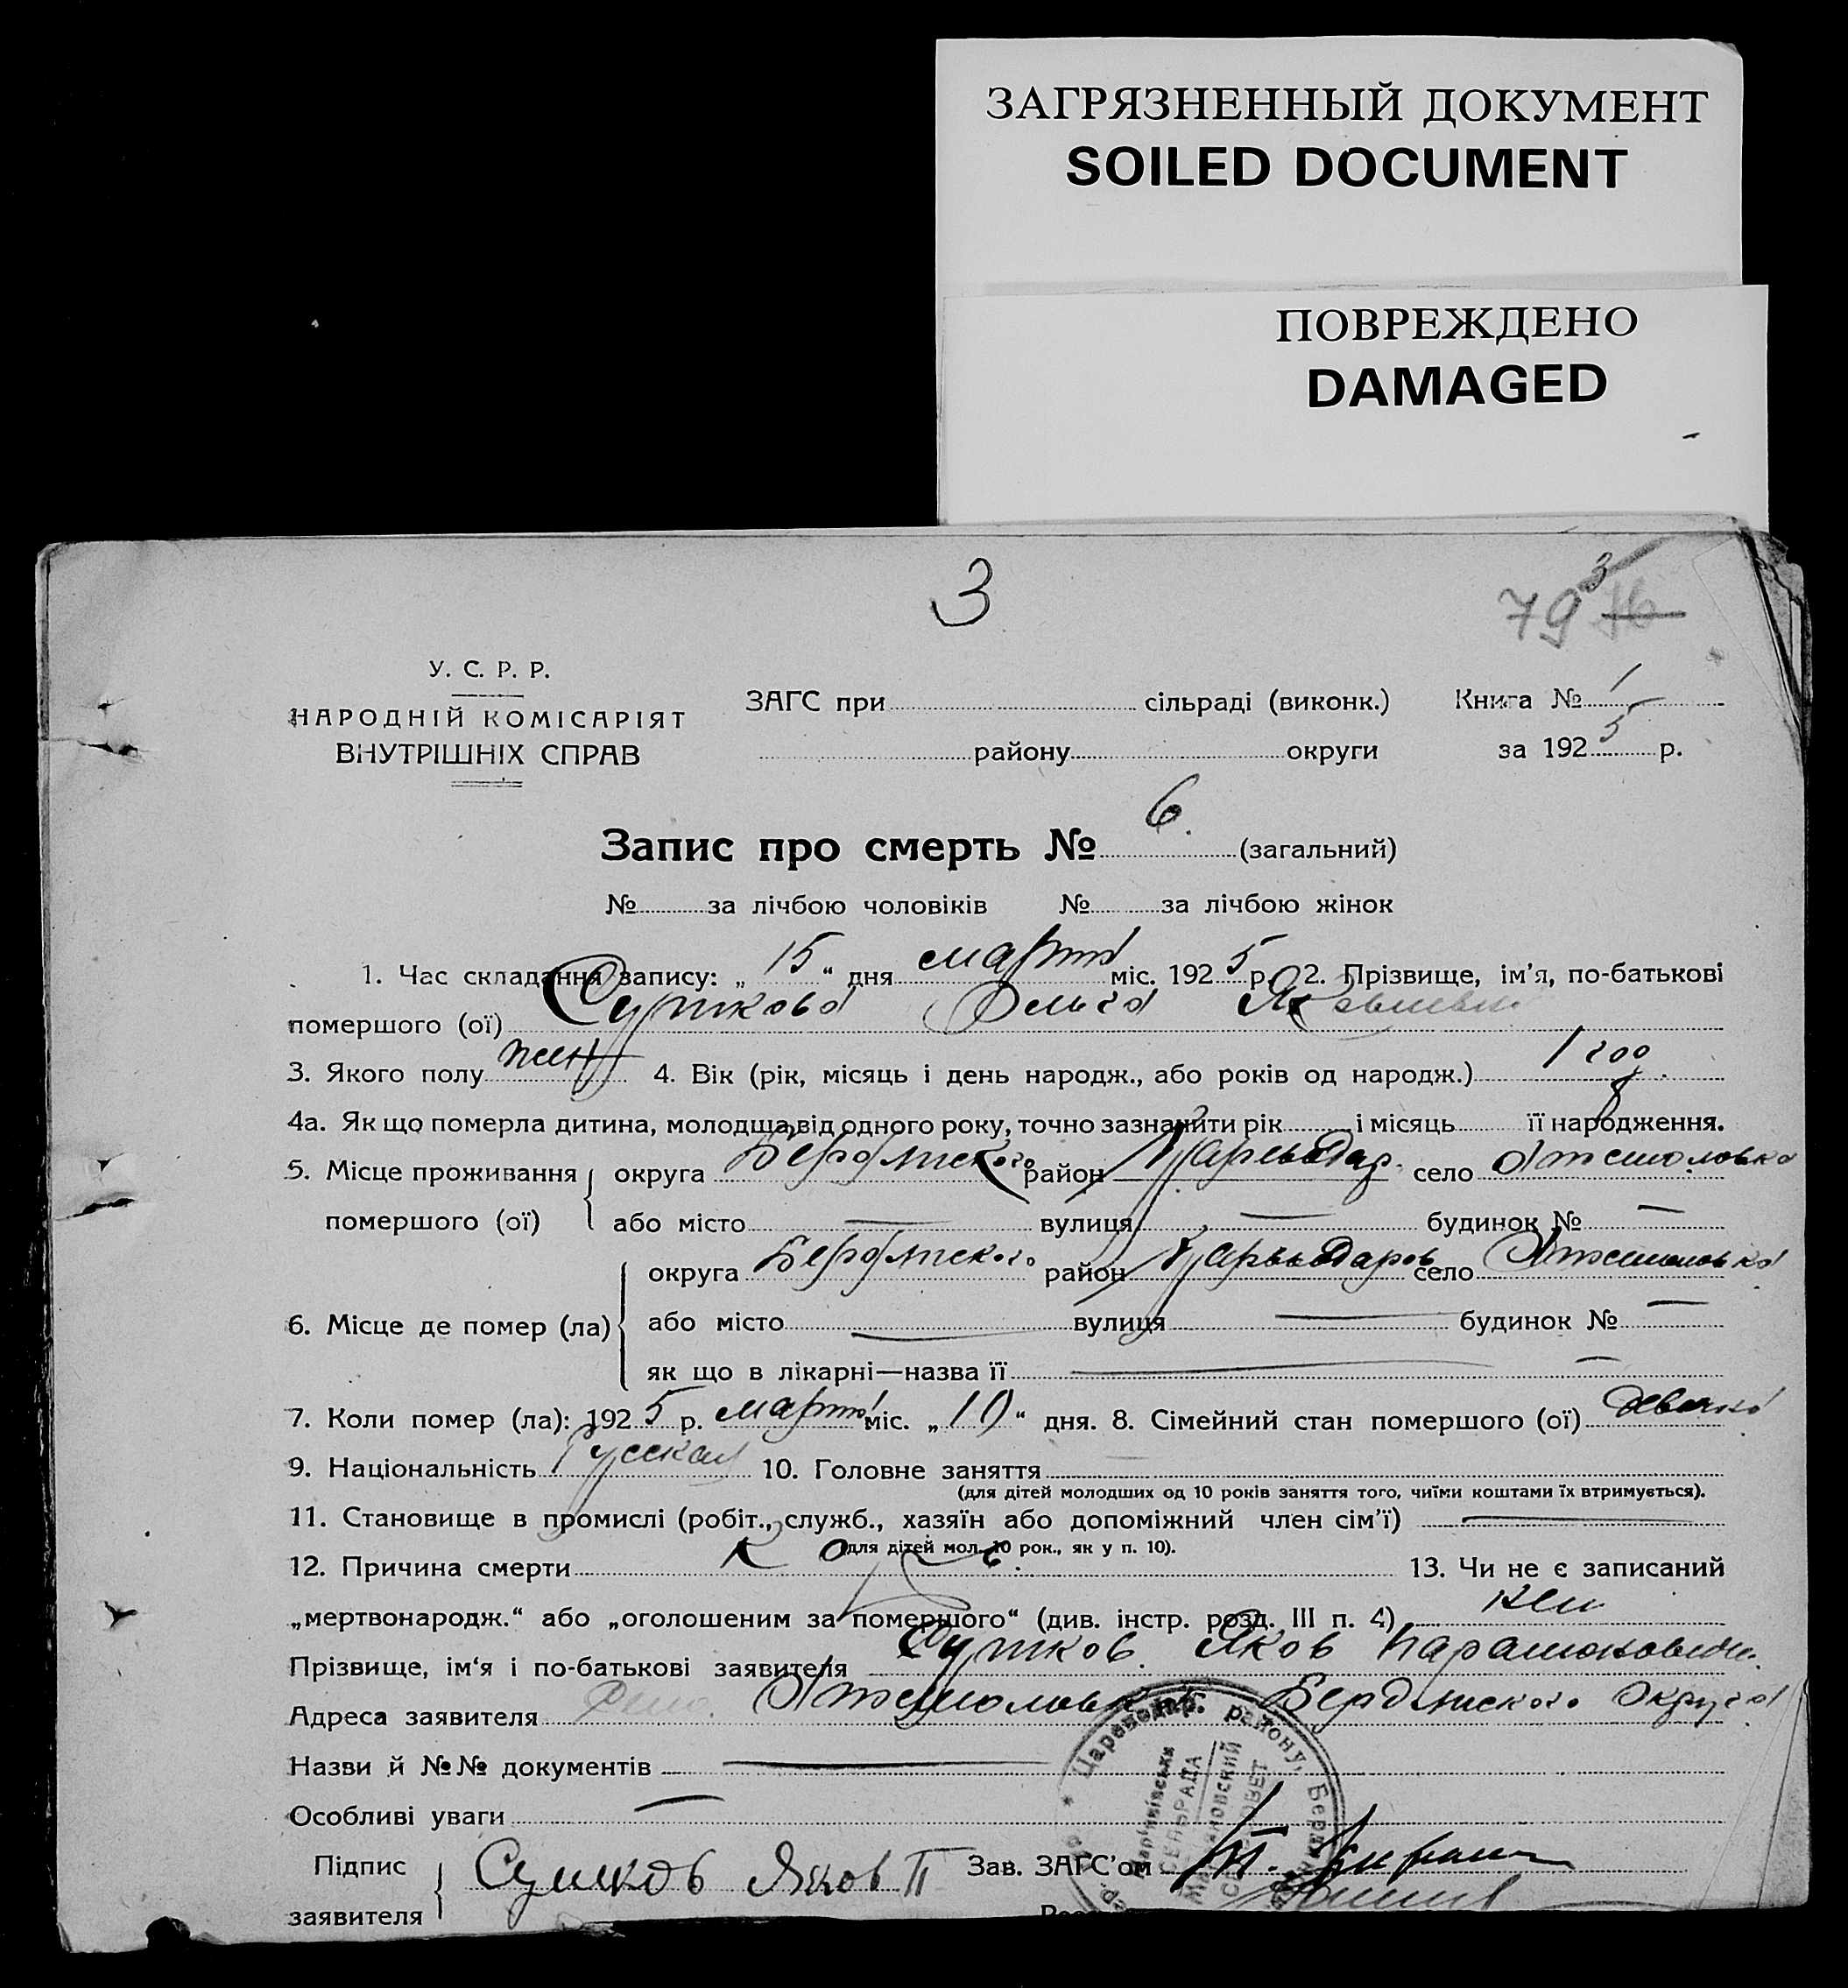 ЗАГРЯЗНЕННЫЙ ДОКУМЕНТ
SOILED DOCUMENT
ПОВРЕЖДЕНО
DAMAGED
3
3
79 76
У. С. Р. Р.
НАРОДНІЙ КОМІСАРІЯТ
ВНУТРІШНІХ СПРАВ
ЗАГС при сільраді (виконк.) Книга № 1
району округи за 1925 р.
Запис про смерть № 6. (загальний)
№ за лічбою чоловіків № за лічбою жінок
1. Час складання запису: „15“ дня марта міс. 1925 р. 2. Прізвище, ім'я, по-батькові
помершого (ої) Суткова Ольга Яковлевна
3. Якого полу жен 4. Вік (рік, місяць і день народж., або років од народж.) 1 год.
4а. Як що померла дитина, молодща від одного року, точно зазначити рік і місяць її народження.
5. Місце проживання помершого (ої) округа Бердянского район Царевъдар. село
або місто — вулиця — будинок № —
6. Місце де помер (ла) округа Бердянского район Царевъдаров село
або місто — вулиця — будинок № —
як що в лікарні—назва її —
7. Коли помер (ла): 1925 р. марта міс. „10“ дня. 8. Сімейний стан помершого (ої) девочка
9. Національність Русская 10. Головне заняття
(для дітей молодших од 10 років заняття того, чиїми коштами їх втримується).
11. Становище в промислі (робіт., служб., хазяїн або допоміжний член сім'ї) —
(для дітей мол. 10 рок., як у п. 10).
12. Причина смерти Корь. 13. Чи не є записаний
„мертвонародж.“ або „оголошеним за помершого“ (див. інстр. розд. III п. 4)
Прізвище, ім'я і по-батькові заявителя Сутков. Яков Парамонович.
Адреса заявителя Бердянского Округа
Назви й №№ документів —
Особливі уваги —
Цареводар. району, Берд
СЕЛЬРАДА
Підпис заявителя Сутков Яков П Зав. ЗАГС'ом